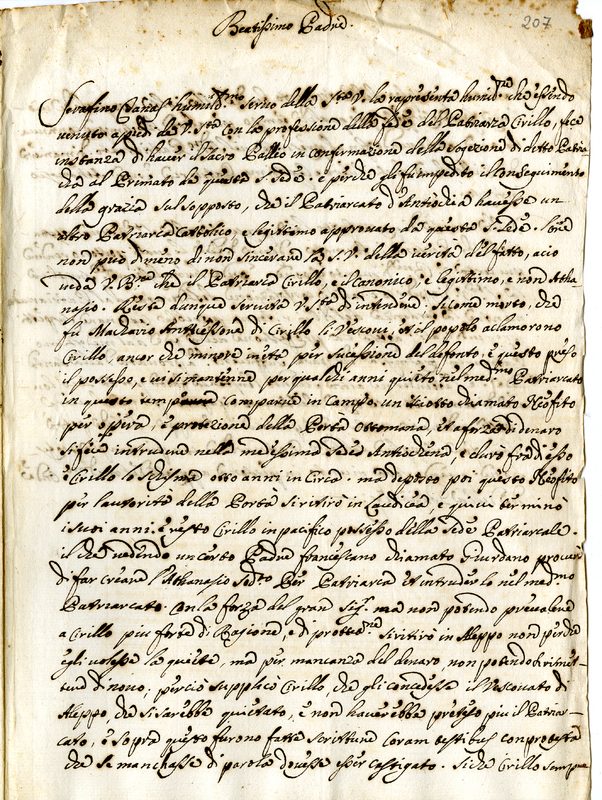 207
Beatissimo Padre.
Serafino Tanas humiliss.mo Servo della S.ta V. le rapresenta humil.te che essendo
venuto a piedi di V. S.tà con la professione della fede del Patriarca Cirillo, fece
instanza di haver il Sacro Pallio in confirmazione della sogezione di detto Patriar
cha al Primato di questa S. Sede. è perche gli fu impedito il conseguimento
della grazia sul sopposto, che il Patriarcato d'Antiochia havesse un
altro Patriarca Cattolico, e legittimo approvato da questa S. Sede. l'ore
non può di meno di non sincerare la S. V. della verità del fatto, acio
veda V. B.ne che il Patriarca Cirillo, e il canonico, e legittimo, e non Atha
nasio. Resta dunque servita V. S.tà di intendere. Si come morto, che
fu Machario Antecessore di Cirillo li Vescovi, et il popolo aclamorono
Cirillo, ancor che minore in età per sucessione del defonto. è questo preso
il possesso, e vi si mantenne per qualchi anni quieto nel med.mo Patriarcato
in questo tempo comparve in campo un chiamato Neofito
per opera, è protezione della Porta Ottomana, et a forza di denaro
si fece intrudere nella medessima Sede Antiochena, e durò frà di esso
è Cirillo lo schisma otto anni in Circa. ma deposto poi questo Neofito
per l'autorità della Porta si ritirò in Laudicea, e quivi terminò
i suoi anni. è restò Cirillo in pacifico possesso della Sede Patriarcale.
il che vedendo un certo Padre francescano chiamato Giurdano procurò
di far creare l'Athanasio Sed.to Per Patriarca et intruderlo nel med.mo
Patriarcato con la forza del gran Sig.r ma non potendo prevalere
a Cirillo più forte di Ragione, e di protte.ne si ritirò in Aleppo non perche
egli volesse la quiete, ma per mancanza del denaro, non potendo rimet-
tere di novo. perciò supplicò Cirillo, che gli concedesse il Vescovato di
Aleppo, che si sarebbe quietato, è non haverebbe preteso più il Patriar-
cato, è sopra questo furono fatte scritture Coram testibus con protesta
che se manchasse di parola dovesse esser castigato. Si che Cirillo sempre